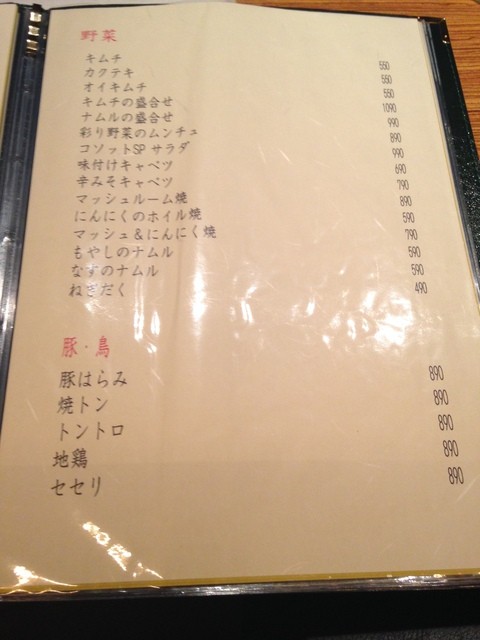 野菜
キムチ 550
カクテキ 550
オイキムチ 550
キムチの盛合せ 1090
ナムルの盛合せ 990
彩り野菜のムンチュ 890
コソットSPサラダ 990
味付けキャベツ 690
辛みそキャベツ 790
マッシュルーム焼 890
にんにくのホイル焼 590
マッシュ&にんにく焼 790
もやしのナムル 590
なすのナムル 590
ねぎだく 490
豚・鳥
豚はらみ 890
焼トン 890
トントロ 890
地鶏 890
セセリ 890